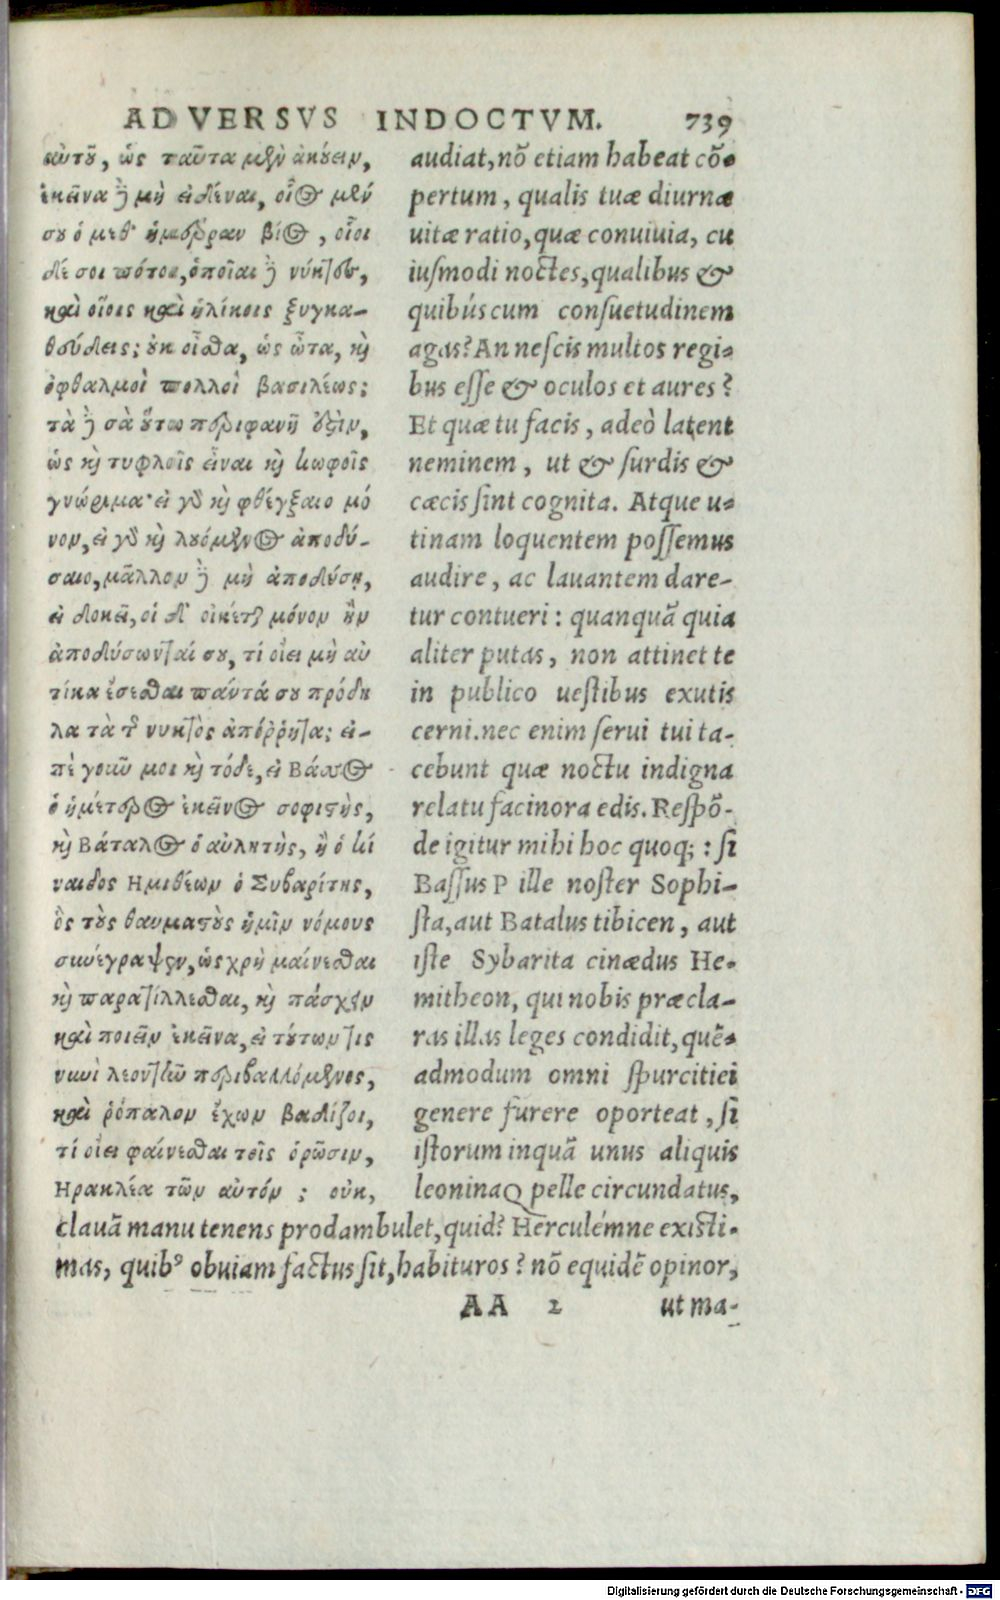 ADVERSVS INDOCTVM. 739
αὐτοῦ, ὡς ταῦτα μὲν ἀκούειν,
ἐκεῖνα δὲ μὴ εἰδέναι, οἷος μέν
σου ὁ μεθ' ἡμέραν βίος, οἷοι
δέ σοι πότοι, ὁποῖαι δὲ νύκτες,
καὶ οἵοις καὶ ἡλίκοις ξυγκα-
θεύδεις; οὐκ οἶσθα, ὡς ὦτα, καὶ
ὀφθαλμοὶ πολλοὶ βασιλέως;
τὰ δὲ σὰ οὕτω περιφανῆ ἐστιν,
ὡς καὶ τυφλοῖς εἶναι καὶ κωφοῖς
γνώριμα· εἰ γὰρ καὶ φθέγξαιο μό
νον, εἰ γὰρ καὶ λουόμενος ἀποδύ-
σαιο, μᾶλλον δὲ μὴ ἀποδύσῃ,
εἰ δοκεῖ, οἱ δ' οἰκέται μόνον ἢν
ἀποδύσωνταί σου, τί οἴει μὴ αὐ
τίκα ἔσεσθαι πάντά σου πρόδη
λα τὰ τῆς νυκτὸς ἀπόρρητα; εἰ-
πὲ γοῦν μοι καὶ τόδε, εἰ Βάσσος
ὁ ἡμέτερος ἐκεῖνος σοφιστὴς,
καὶ Βάταλος ὁ αὐλητὴς, ἢ ὁ κί
ναιδος Ημιθέων ὁ Συβαρίτης,
ὃς τοὺς θαυμαστοὺς ἡμῖν νόμους
συνέγραψεν, ὡς χρὴ μαίνεσθαι
καὶ παρατίλλεσθαι, καὶ πάσχειν
καὶ ποιεῖν ἐκεῖνα, εἰ τούτων τις
νυνὶ λεοντῆν περιβαλλόμενος,
καὶ ῥόπαλον ἔχων βαδίζοι,
τί οἴει φαίνεσθαι τοῖς ὁρῶσιν,
Ηρακλέα τῶν αὐτόν; οὐκ,
audiat, nõ etiam habeat cõ-
pertum, qualis tuæ diurnæ
uitæ ratio, quæ conuiuia, cu
iusmodi noctes, qualibus &
quibúscum consuetudinem
agas? An nescis multos regi-
bus esse & oculos et aures?
Et quæ tu facis, adeò latent
neminem, ut & surdis &
cæcis sint cognita. Atque u-
tinam loquentem possemus
audire, ac lauantem dare-
tur contueri: quanquã quia
aliter putas, non attinet te
in publico uestibus exutis
cerni. nec enim serui tui ta-
cebunt quæ noctu indigna
relatu facinora edis. Respõ-
de igitur mihi hoc quoq;: si
Bassus P ille noster Sophi-
sta, aut Batalus tibicen, aut
iste Sybarita cinædus He-
mitheon, qui nobis præcla-
ras illas leges condidit, quẽ-
admodum omni spurcitiei
genere furere oporteat, si
istorum inquã unus aliquis
leoninaQ pelle circundatus,
clauã manu tenens prodambulet, quid? Herculémne existi-
mas, quibꝰ obuiam factus sit, habituros? nõ equidẽ opinor,
AA 2 ut ma-
Digitalisierung gefördert durch die Deutsche Forschungsgemeinschaft - DFG